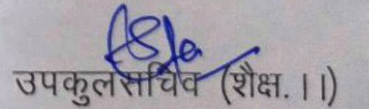 उपकुलसचिव (शैक्ष. ।।)